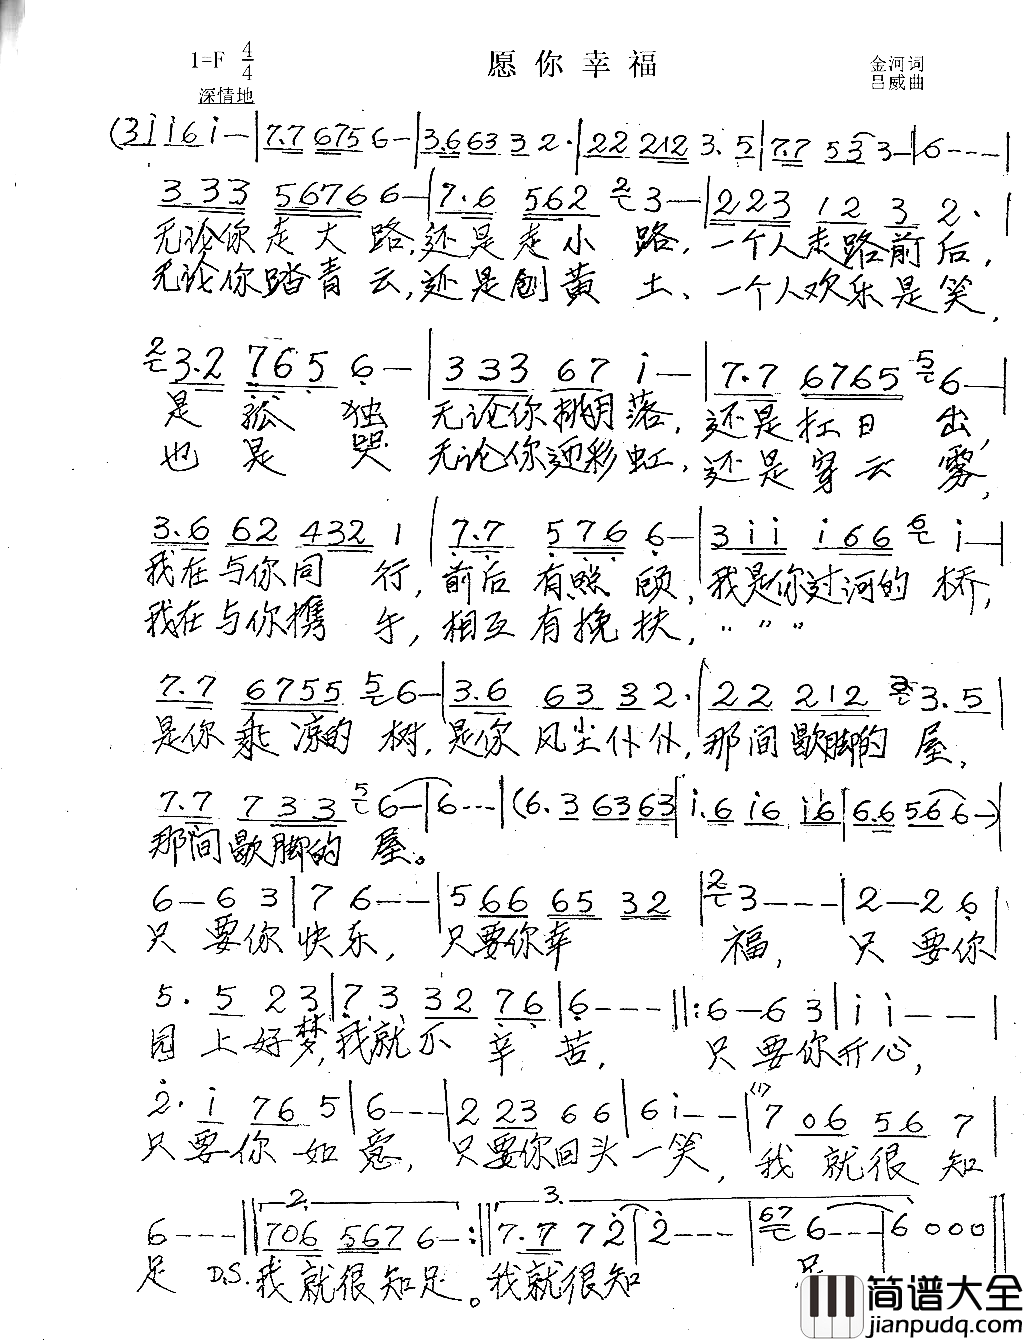 1=F 4/4 愿你幸福 金河词
深情地 吕威曲
(3 i i 6 i - | 7. 7 6 7 5 6 - | 3. 6 6 3 3 2 · | 2 2 2 1 2 3. 5 | 7. 7 5 3 3 - | 6 - - - |
3 3 3 5 6 7 6 6 - | 7. 6 5 6 2 2 3 - | 2 2 3 1 2 3 2 · |
无论你走大路,还是走小路,一个人走路前后,
无论你踏青云,还是创黄土、一个人欢乐是笑,
2 3. 2 7 6 5 6 - | 3 3 3 6 7 i - | 7. 7 6 7 6 5 5 6 - |
是孤独 无论你挑月落,还是扛日出,
也是哭 无论你迎彩虹,还是穿云雾,
3. 6 6 2 4 3 2 1 | 7. 7 5 7 6 6 - | 3 i i i 6 6 6 i - |
我在与你同行,前后有照顾,我是你过河的桥,
我在与你携手,相互有挽扶,〃〃〃
7. 7 6 7 5 5 5 6 - | 3. 6 6 3 3 2 · | 2 2 2 1 2 3. 5 |
是你乘凉的树,是你风尘仆仆,那间歇脚的屋,
7. 7 7 3 3 5 6 - | 6 - - - | (6. 3 6 3 6 3 | i. 6 i 6 i 6 | 6. 6 5 6 6 - )
那间歇脚的屋。
6 - 6 3 | 7 6 - - | 5 6 6 6 5 3 2 | 2 3 - - - | 2 - 2 6 |
只要你快乐,只要你幸福,只要你
5. 5 2 3 | 7 3. 3 2 7 6 | 6 - - - ‖: 6 - 6 3 | i i - - |
圆上好梦,我就不辛苦,只要你开心,
2. i 7 6 5 | 6 - - - | 2 2 3 6 6 | 6 i - - | (1) 7 0 6 5 6 7
只要你如意,只要你回头一笑,我就很知
6 - - - ‖ 2. 7 0 6 5 6 7 6 - :‖ 3. 7. 7 7 2 | 2 - - - | 67 6 - - - | 6 0 0 0 ‖
足 D.S. 我就很知足。我就很知足
简谱大全
jianpudq.com